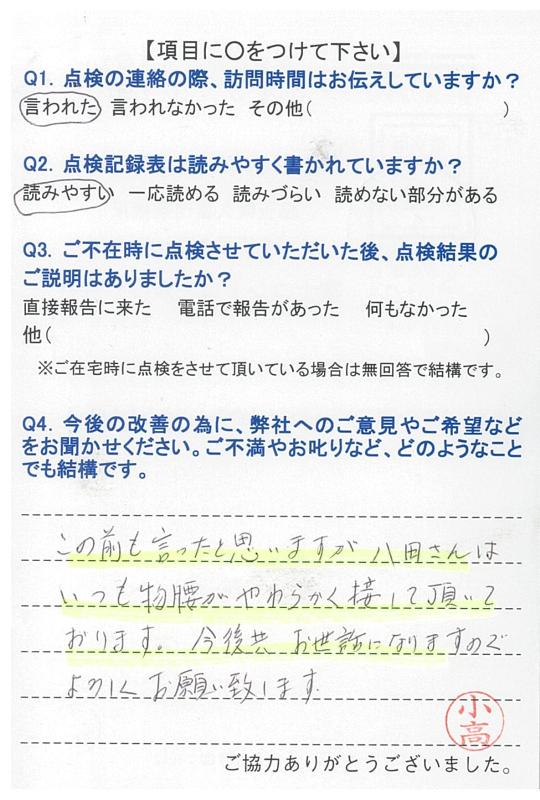 【項目に○をつけて下さい】
Q1. 点検の連絡の際、訪問時間はお伝えしていますか?
言われた 言われなかった その他( )
Q2. 点検記録表は読みやすく書かれていますか?
読みやすい 一応読める 読みづらい 読めない部分がある
Q3. ご不在時に点検させていただいた後、点検結果の
ご説明はありましたか?
直接報告に来た 電話で報告があった 何もなかった
他( )
※ご在宅時に点検をさせて頂いている場合は無回答で結構です。
Q4. 今後の改善の為に、弊社へのご意見やご希望など
をお聞かせください。ご不満やお叱りなど、どのようなこと
でも結構です。
この前も言ったと思いますが 八田さんは
いつも物腰がやわらかく接して頂いて
おります。今後共 お世話になりますので
よろしくお願い致します.
小高
ご協力ありがとうございました。